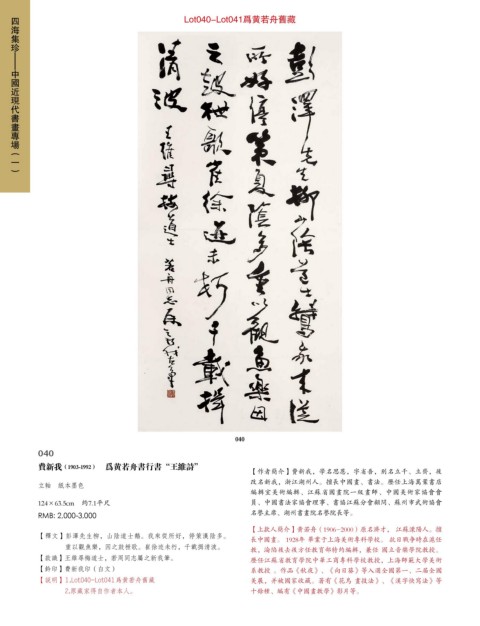 Lot040-Lot041爲黄若舟舊藏
四海集珍——中國近現代書畫專場（一）
彭澤先生柳山陰道士鵞我來從
所好停策夏陰多重以觀魚樂因
之鼓枻歌崔徐迹未朽千載揖
清波
王維尋梅道士
若舟同志
040
040
費新我（1903-1992）　爲黄若舟書行書“王維詩”
立軸　紙本墨色
124×63.5cm　約7.1平尺
RMB: 2,000-3,000
【釋文】彭澤先生柳，山陰道士鵝。我來從所好，停策漢陰多。
重以觀魚樂，因之鼓枻歌。崔徐迹未朽，千載揖清波。
【款識】王維尋梅道士，若周同志屬之新我筆。
【鈐印】費新我印（白文）
【説明】1.Lot040-Lot041爲黄若舟舊藏
2.原藏家得自作者本人。
【作者簡介】費新我，學名思恩，字省吾，别名立千、立斋，後
改名新我，浙江湖州人。擅長中國畫、書法。歷任上海萬葉書店
編輯室美術編輯、江蘇省國畫院一級畫師，中國美術家協會會
員、中國書法家協會理事、書協江蘇分會顧問、蘇州市武術協會
名譽主席、湖州書畫院名譽院長等。
【上款人簡介】黄若舟（1906-2000）原名濟才，江蘇溧陽人。擅
長中國畫。1928年 畢業于上海美術專科學校。抗日戰争時在滬任
教，淪陷後去後方任教育部特約編輯，兼任 國立音樂學院教授。
歷任江蘇省教育學院中華工商專科學校教授，上海師範大學美術
系教授 。作品《秋夜》、《向日葵》等入選全國第一、二届全國
美展，并被國家收藏。著有《花鳥 畫技法》、《漢字快寫法》等
十餘種。編有《中國畫教學》影片等。